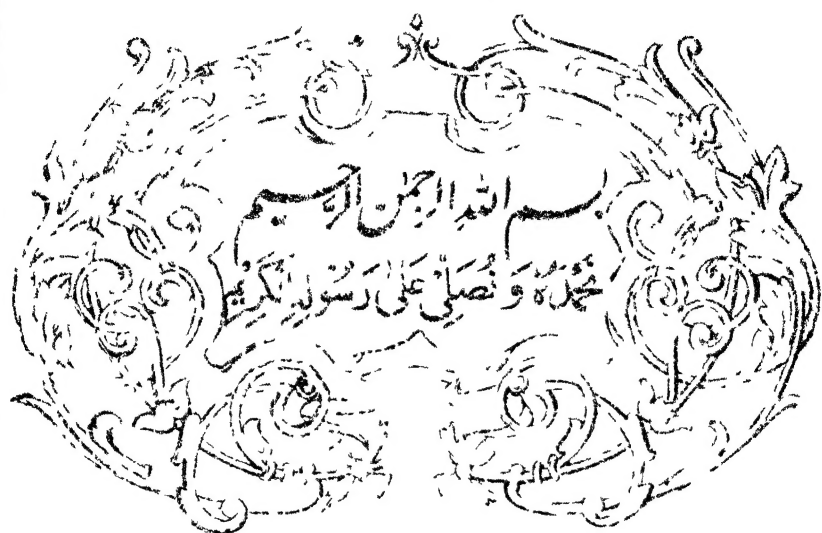 بسم الله الرحمن الرحيم
نَحْمَدُهُ وَ نُصَلِّي عَلَىٰ رَسُولِهِ الْكَرِيمِ